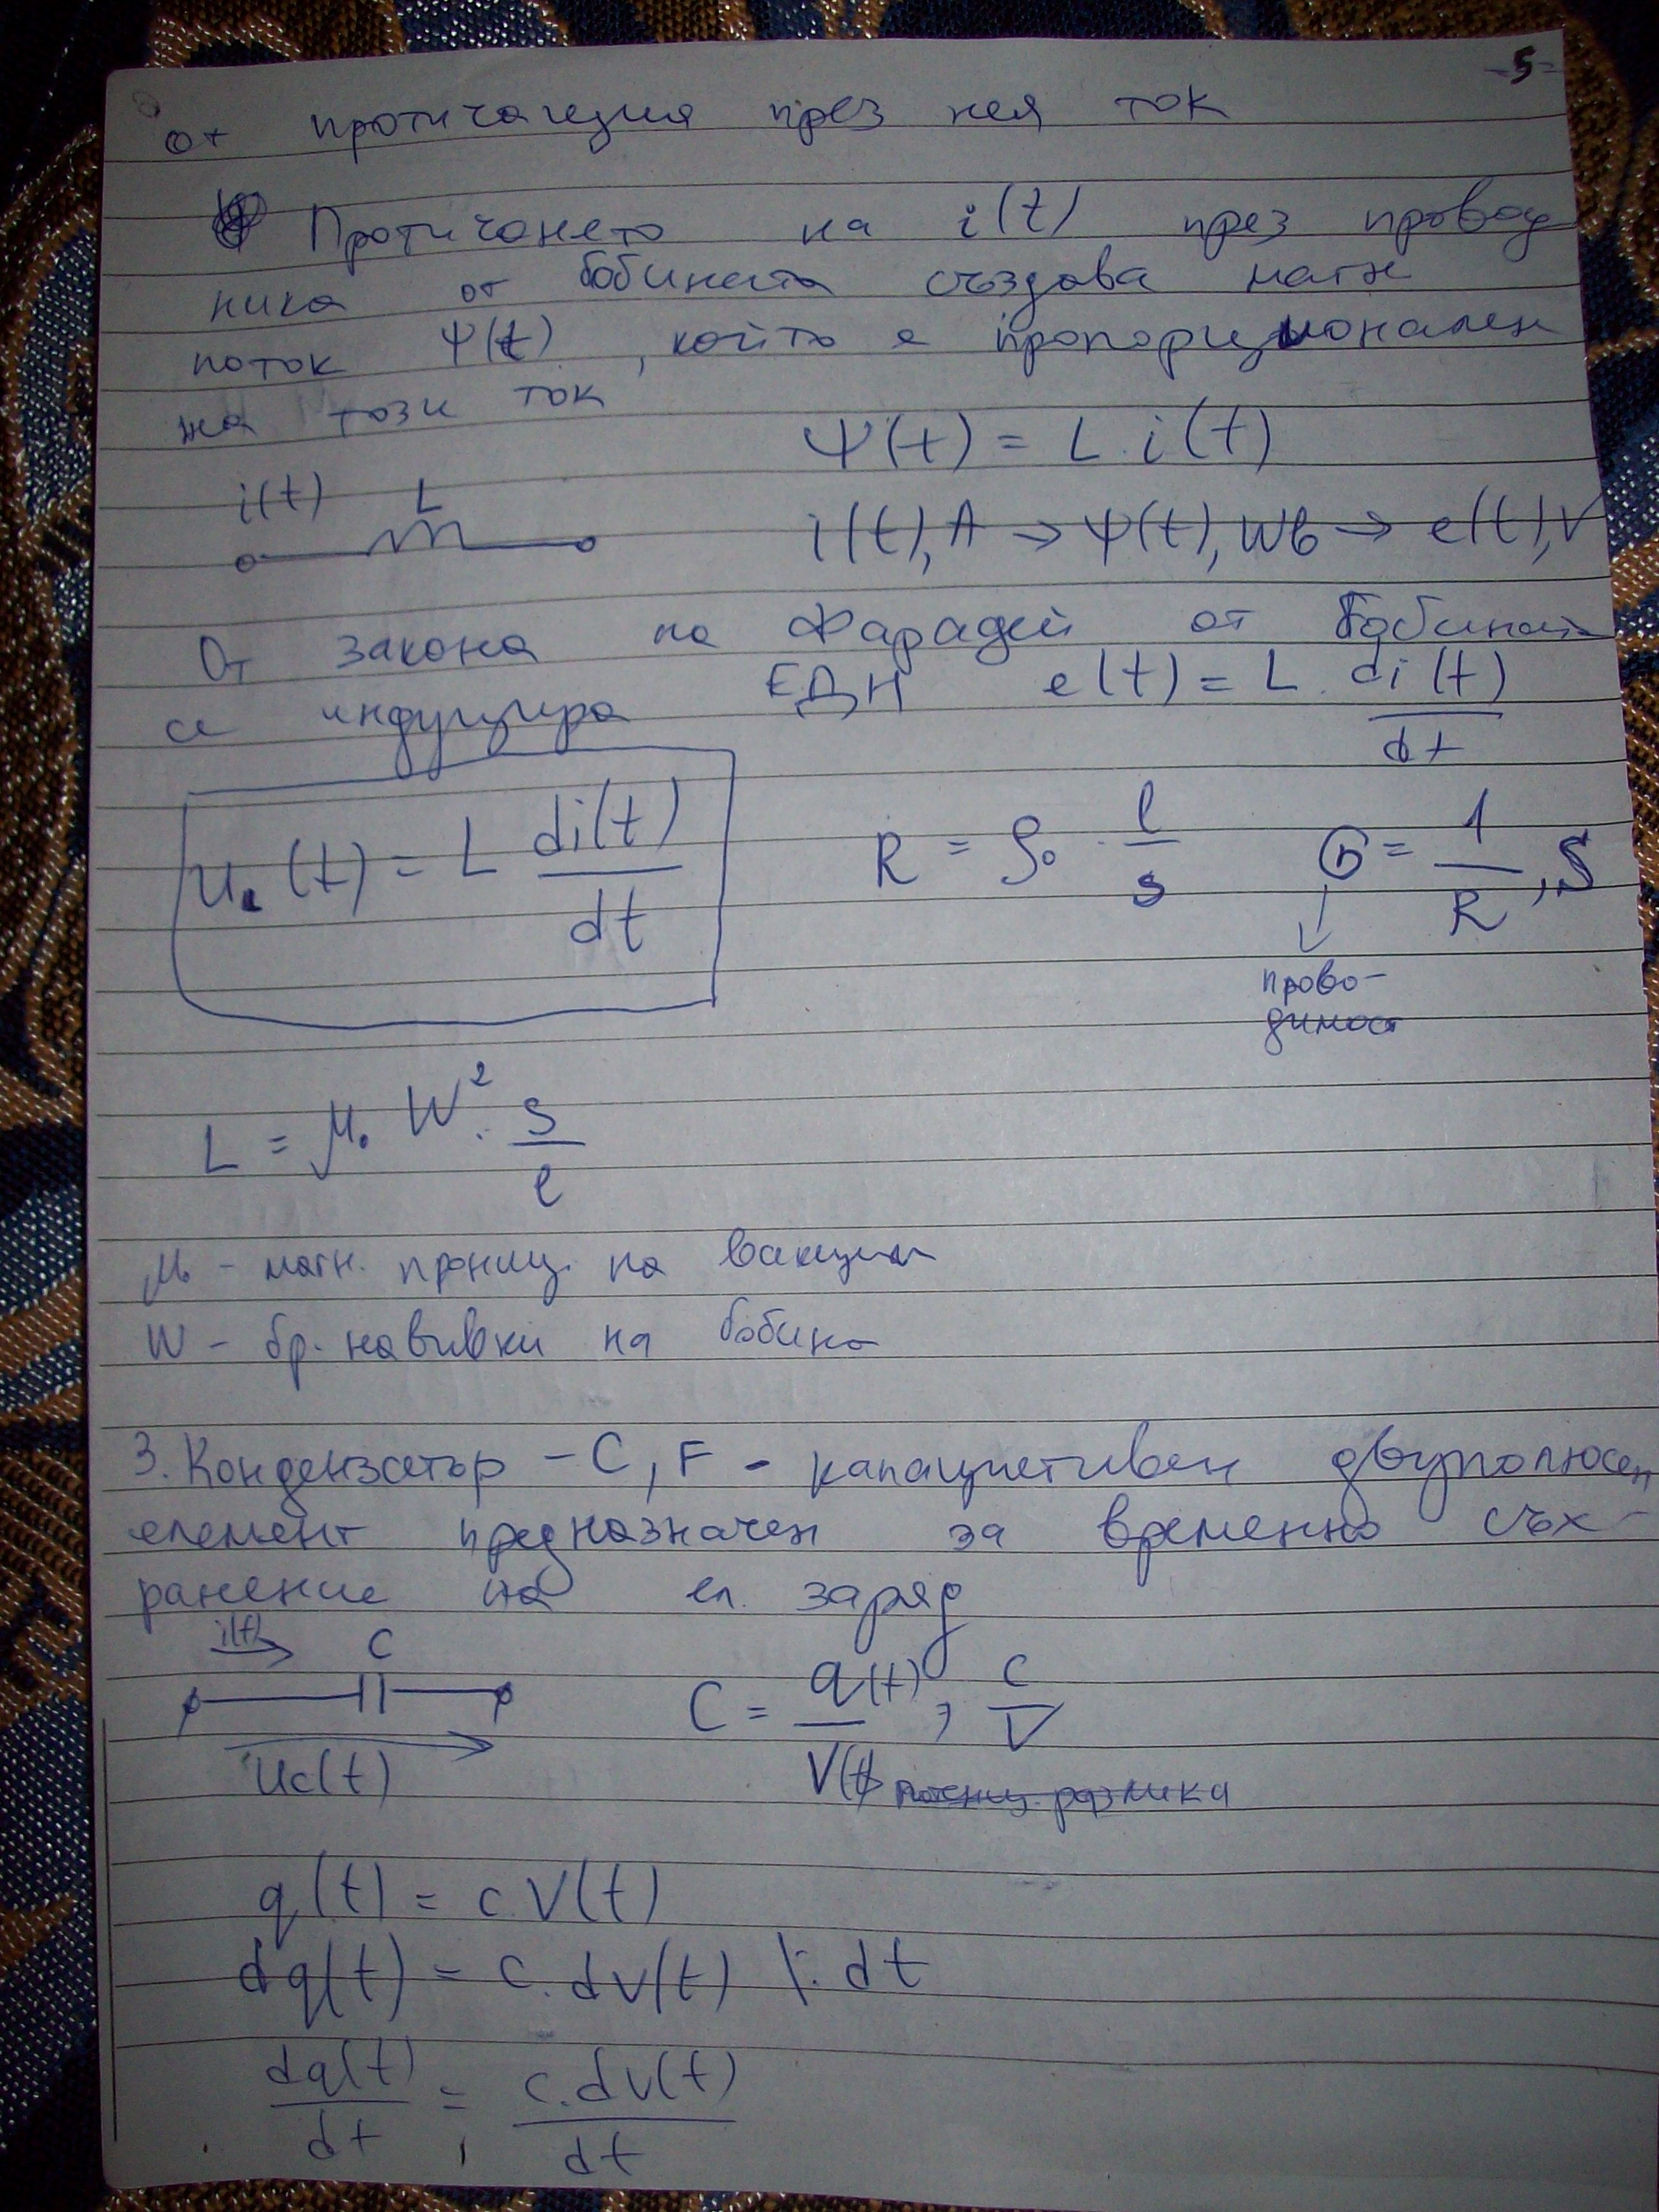 -5-
от протичащия през нея ток
Протичането на i(t) през провод
ника от бобината създава магн
поток Ψ(t), който е пропорционален
на този ток
Ψ(t) = L.i(t)
i(t) L
i(t),A → Ψ(t),Wb → e(t),V
От закона на Фарадей от бобината
се индуцира ЕДН e(t) = L. di(t)/dt
uL(t) = L di(t)/dt
R = ρ₀ . l/s
G = 1/R, S
прово-
димост
L = μ₀ W². s/l
μ₀ - магн. прониц. на вакуум
W - бр. навивки на бобина
3. Кондензатор - C, F - капацитивен двуполюсен
елемент предназначен за временно съх-
ранение на ел. заряд
i(t) C
uc(t)
C = q(t)/V(t), C/V
потенц. разлика
q(t) = c.V(t)
dq(t) = c.dv(t) \: dt
dq(t)/dt = c.dv(t)/dt